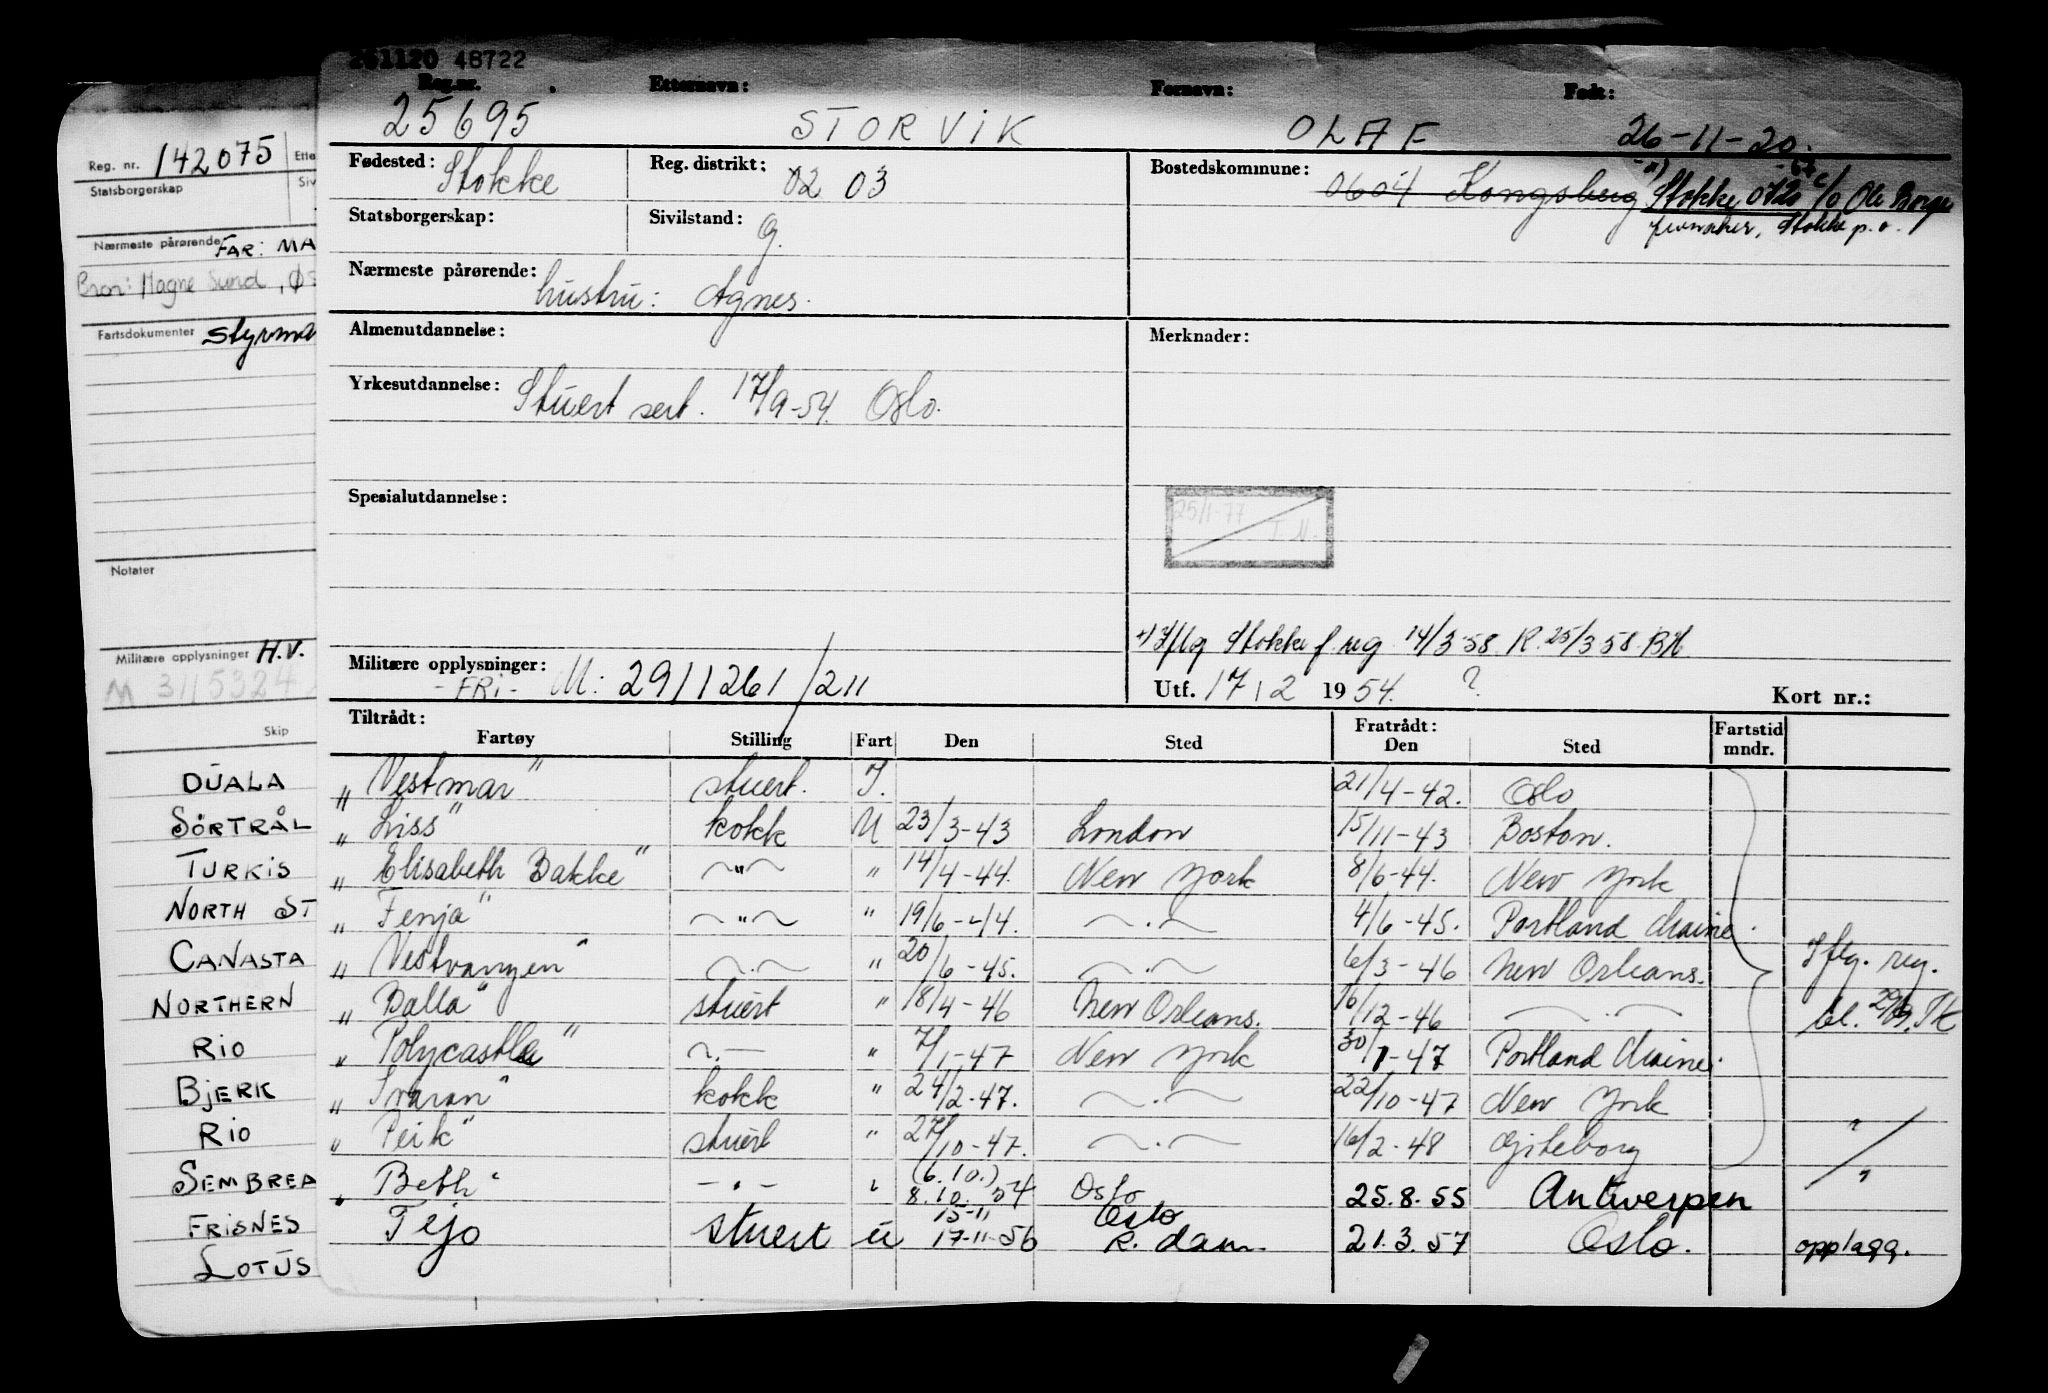 261120 48722
Reg.nr. Etternavn: Fornavn: Født:
25695 STORVIK OLAF 26-11-20.
Fødested: Stokke Reg. distrikt: 02 03 Bostedskommune: 0604 Kongsberg Stokke 0720 c/o Ole Borge
Stokke p.o.
Statsborgerskap: Sivilstand: g.
Nærmeste pårørende: hustru: Agnes.
Almenutdannelse: Merknader:
Yrkesutdannelse: Stuert sert. 17/9-54. Oslo.
Spesialutdannelse: 25/1-77
T.N.
+) Iflg Stokke f. reg. 14/3-58. R. 25/3 58. BH
Militære opplysninger: -FRi- M: 2911261/211 Utf. 17/2 1954. ? Kort nr.:
Tiltrådt: Fratrådt: Fartstid
Fartøy Stilling Fart Den Sted Den Sted mndr.
„ Vestmar" stuert. I. 21/4-42. Oslo
„ Liss" kokk U 23/3-43 London 15/11-43 Boston.
„ Elisabeth Bakke" —"— " 14/4-44. New York 8/6-44. New York
„ Fenja" —"— " 19/6-44. —.— 4/6-45. Portland Maine.
„ Vestvangen" —.— " 20/6-45. —.— 6/3-46 New Orleans. Iflg. reg.
„ Balla" stuert " 18/4-46 New Orleans. 16/12-46 —.—
„ Polycastle" —.— " 7/1-47 New York 30/1-47 Portland Maine.
„ Svaran" kokk " 24/2-47. —.— 22/10-47 New York
„ Peik" stuert " 27/10-47. —.— 16/2-48 Gøteborg "
„ Beth" —"— " (6.10.) 8.10.54 Oslo 25.8.55 Antwerpen "
Tejo stuert u 15-11 17-11-56 Oslo R.dam 21.3.57 Oslo. opplagg.
Reg. nr. 142075 Ette
Statsborgerskap Siv
Nærmeste pårørende FAR: MA
Bror: Magne Sund, Øs
Fartsdokumenter styrma
Notater
Militære opplysninger H.V.
M 3115324
Skip
DUALA
SÖRTRÅL
TURKIS
NORTH ST
CANASTA
NORTHERN
RIO
BJERK
RIO
SEMBREA
FRISNES
LOTUS